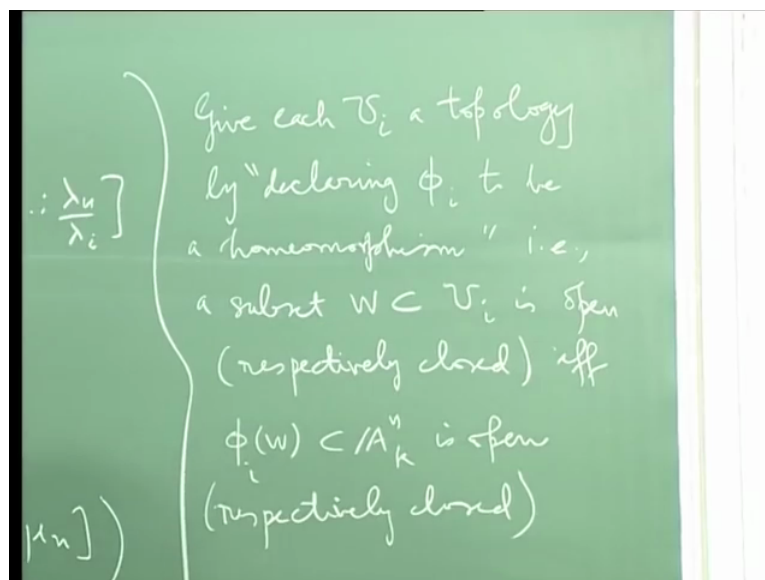 Give each U_i a topology
by "declaring φ_i to be
a homeomorphism" i.e.,
a subset W ⊂ U_i is open
(respectively closed) iff
φ_i(W) ⊂ A^n_k is open
(respectively closed)
: λ_n/λ_i]
μ_n])